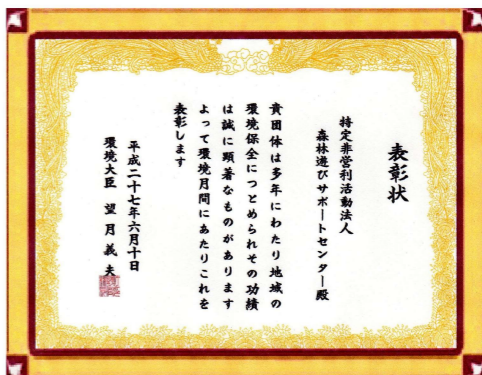 表彰状
特定非営利活動法人
森林遊びサポートセンター殿
貴団体は多年にわたり地域の
環境保全につとめられその功績
は誠に顕著なものがあります
よって環境月間にあたりこれを
表彰します
平成二十七年六月十日
環境大臣 望月義夫